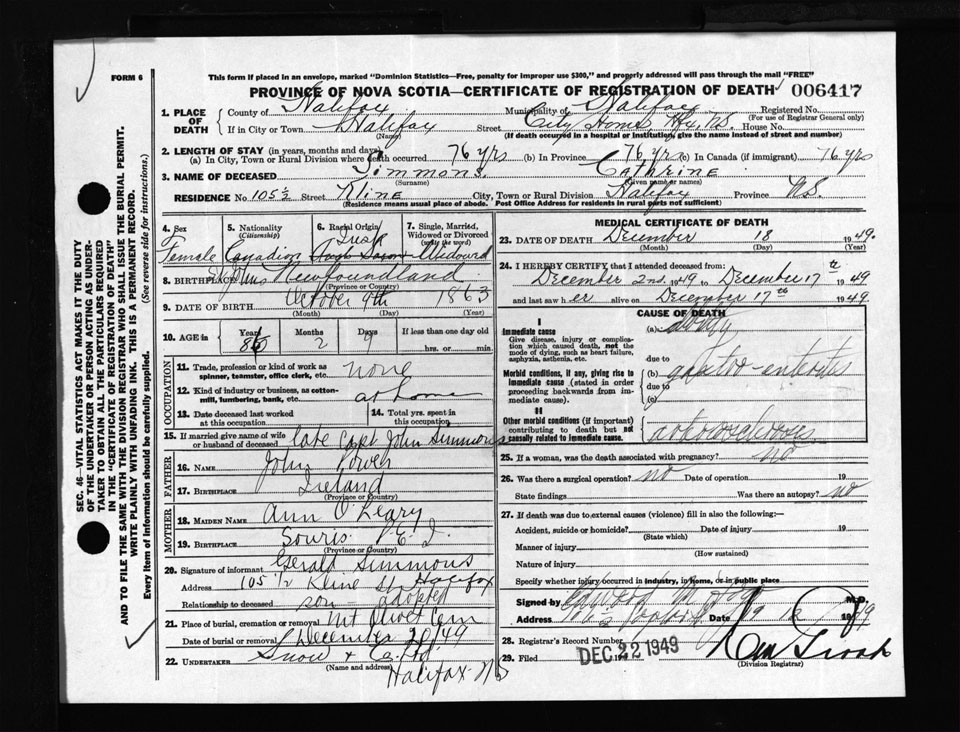 FORM 6
This form if placed in an envelope, marked "Dominion Statistics—Free, penalty for improper use $300," and properly addressed will pass through the mail "FREE"
PROVINCE OF NOVA SCOTIA—CERTIFICATE OF REGISTRATION OF DEATH 006417
SEC. 46—VITAL STATISTICS ACT MAKES IT THE DUTY
OF THE UNDERTAKER OR PERSON ACTING AS UNDER-
TAKER TO OBTAIN ALL THE PARTICULARS REQUIRED
IN THE "CERTIFICATE OF REGISTRATION OF DEATH"
AND TO FILE THE SAME WITH THE DIVISION REGISTRAR WHO SHALL ISSUE THE BURIAL PERMIT.
WRITE PLAINLY WITH UNFADING INK. THIS IS A PERMANENT RECORD.
Every item of information should be carefully supplied. (See reverse side for instructions.)
1. PLACE OF DEATH County of Halifax Municipality of Halifax Registered No.
(For use of Registrar General only)
If in City or Town Halifax Street City Home, Hfx, N.S. House No.
(Name) (If death occurred in a hospital or institution, give the name instead of street and number)
2. LENGTH OF STAY (in years, months and days)
(a) In City, Town or Rural Division where death occurred 76 yrs (b) In Province 76 yrs (c) In Canada (if immigrant) 76 yrs
3. NAME OF DECEASED Simmons Cathrine
(Surname) (Given name or names)
RESIDENCE No 105½ Street Kline City, Town or Rural Division Halifax Province N.S.
(Residence means usual place of abode. Post Office Address for residents in rural parts not sufficient)
4. Sex 5. Nationality (Citizenship) 6. Racial Origin 7. Single, Married, Widowed or Divorced (write the word)
Irish
Female Canadian Widowed
8. BIRTHPLACE St Johns Newfoundland
(Province or Country)
9. DATE OF BIRTH October 9th 1863
(Month) (Day) (Year)
10. AGE in Years Months Days If less than one day old
86 2 9 hrs. or min.
OCCUPATION
11. Trade, profession or kind of work as
spinner, teamster, office clerk, etc. none
12. Kind of industry or business, as cotton-
mill, lumbering, bank, etc. at home
13. Date deceased last worked
at this occupation
14. Total yrs. spent in
this occupation
15. If married give name of wife
or husband of deceased late Capt John Simmons
FATHER
16. NAME John Power
17. BIRTHPLACE Ireland
(Province or Country)
MOTHER
18. MAIDEN NAME Ann O'Leary
19. BIRTHPLACE Souris P.E.I.
(Province or Country)
20. Signature of informant Gerald Simmons
Address 105 1/2 Kline St Halifax
Relationship to deceased son adopted
21. Place of burial, cremation or removal Mt Olivet Cem
Date of burial or removal December 20/49
22. UNDERTAKER Snow & Co. Ltd.
(Name and address)
Halifax NS
MEDICAL CERTIFICATE OF DEATH
23. DATE OF DEATH December 18 1949.
(Month) (Day) (Year)
24. I HEREBY CERTIFY that I attended deceased from:
December 2nd 1949 to December 17th 1949
and last saw her alive on December 17th 1949
CAUSE OF DEATH
I
Immediate cause
Give disease, injury or complica-
tion which caused death, not the
mode of dying, such as heart failure,
asphyxia, asthenia, etc.
(a)
due to
Morbid conditions, if any, giving rise to
immediate cause (stated in order
proceeding backwards from im-
mediate cause).
(b) gastro-enteritis
due to
(c)
II
Other morbid conditions (if important)
contributing to death but not
causally related to immediate cause.
25. If a woman, was the death associated with pregnancy? no
26. Was there a surgical operation? no Date of operation 19
State findings Was there an autopsy? no
27. If death was due to external causes (violence) fill in also the following:—
Accident, suicide or homicide? Date of injury 19
(State which)
Manner of injury
(How sustained)
Nature of injury
Specify whether injury occurred in industry, in home, or in public place
Signed by M.D.
Date 19 12 1949
28. Registrar's Record Number
29. Filed DEC 22 1949
(Division Registrar)